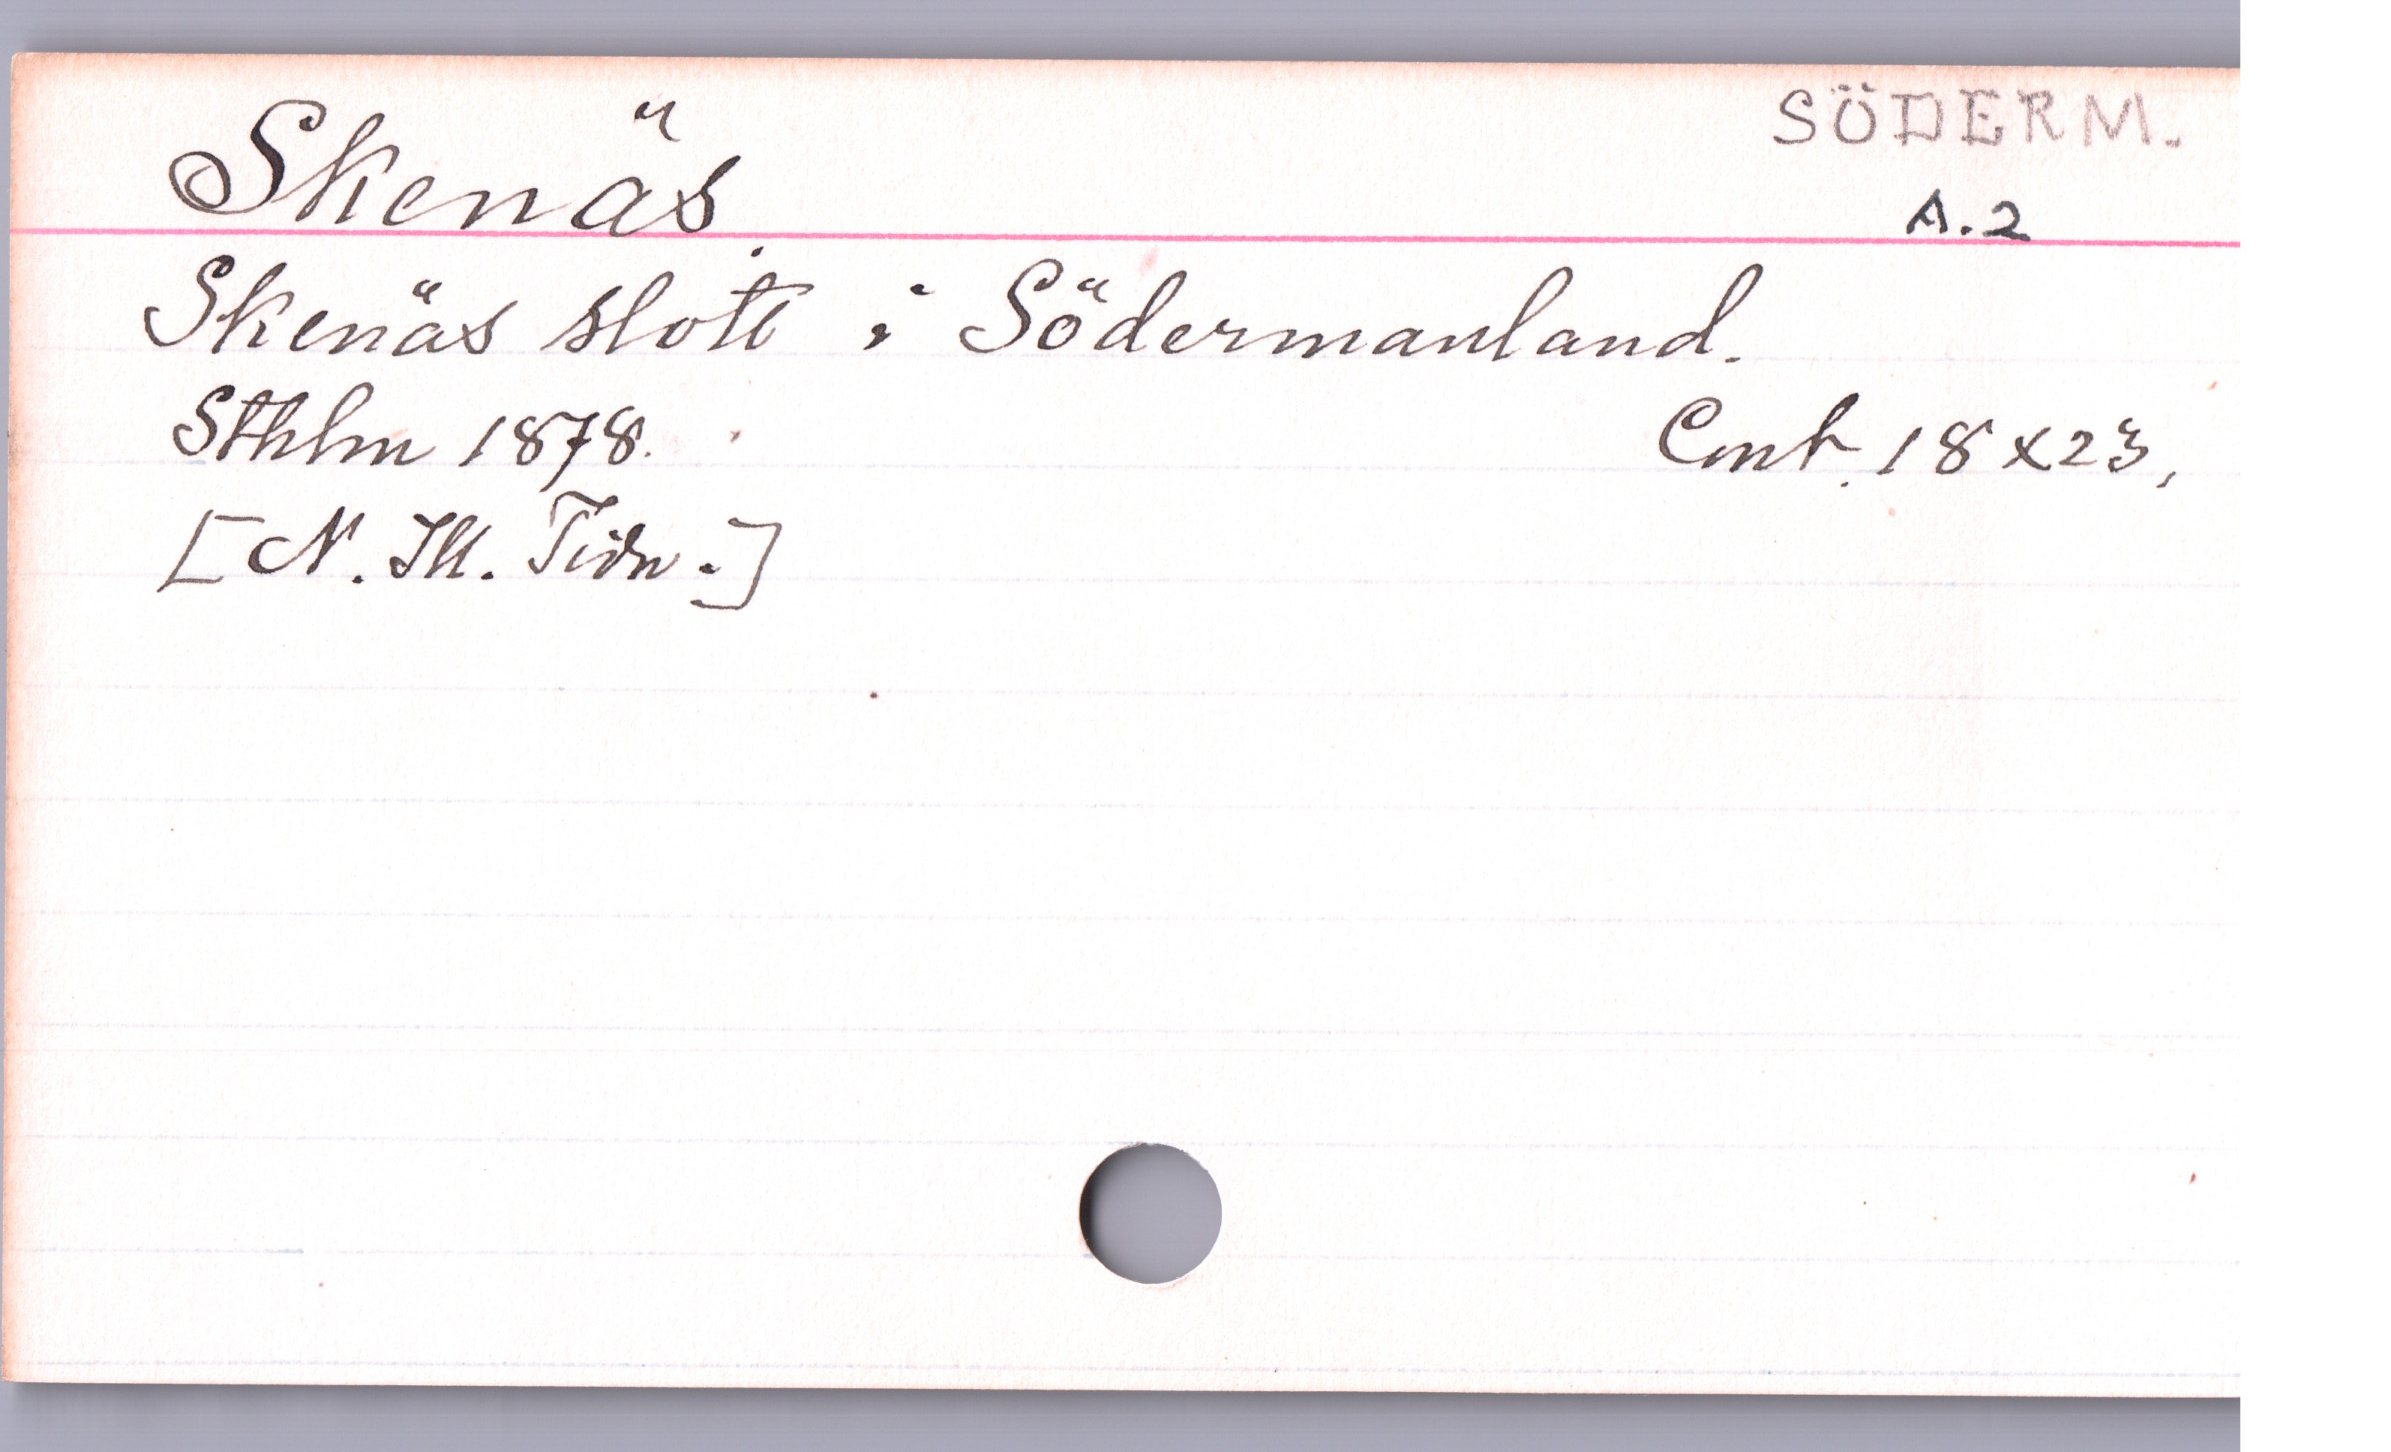 Skenäs
SÖDERM.
A.2
Skenäs slott i Södermanland.
Sthlm 1878. 18x23,
[N. Ill. Tidn.]